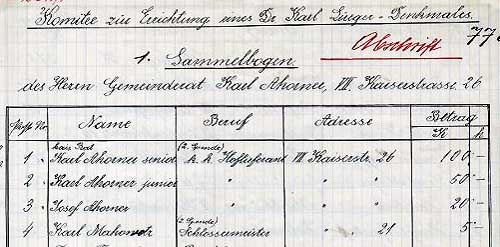 Komitee zur Errichtung eines Dr Karl Lueger-Denkmales.
77
Abschrift
1. Sammelbogen
des Herrn Gemeinderat Karl Ahorner, VII. Kaiserstrasse. 26
Post Nr. Name Beruf Adresse Betrag
K h
kais. Rat (2 Gemeinde)
1 Karl Ahorner senior k. k. Hoflieferant VII Kaiserstr. 26 100 -
2 Karl Ahorner junior " " " 50 -
3 Josef Ahorner " " " 20 -
4 Karl Schlossermeister " 21 5 -